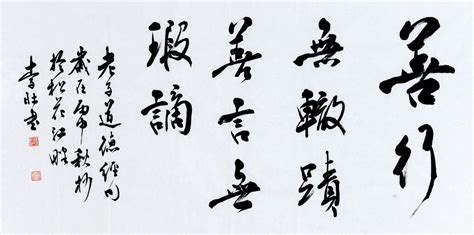 善行
無轍蹟
善言無
瑕謫
老子道德經句
歲在丙申秋杪
於松花江畔
李壯書